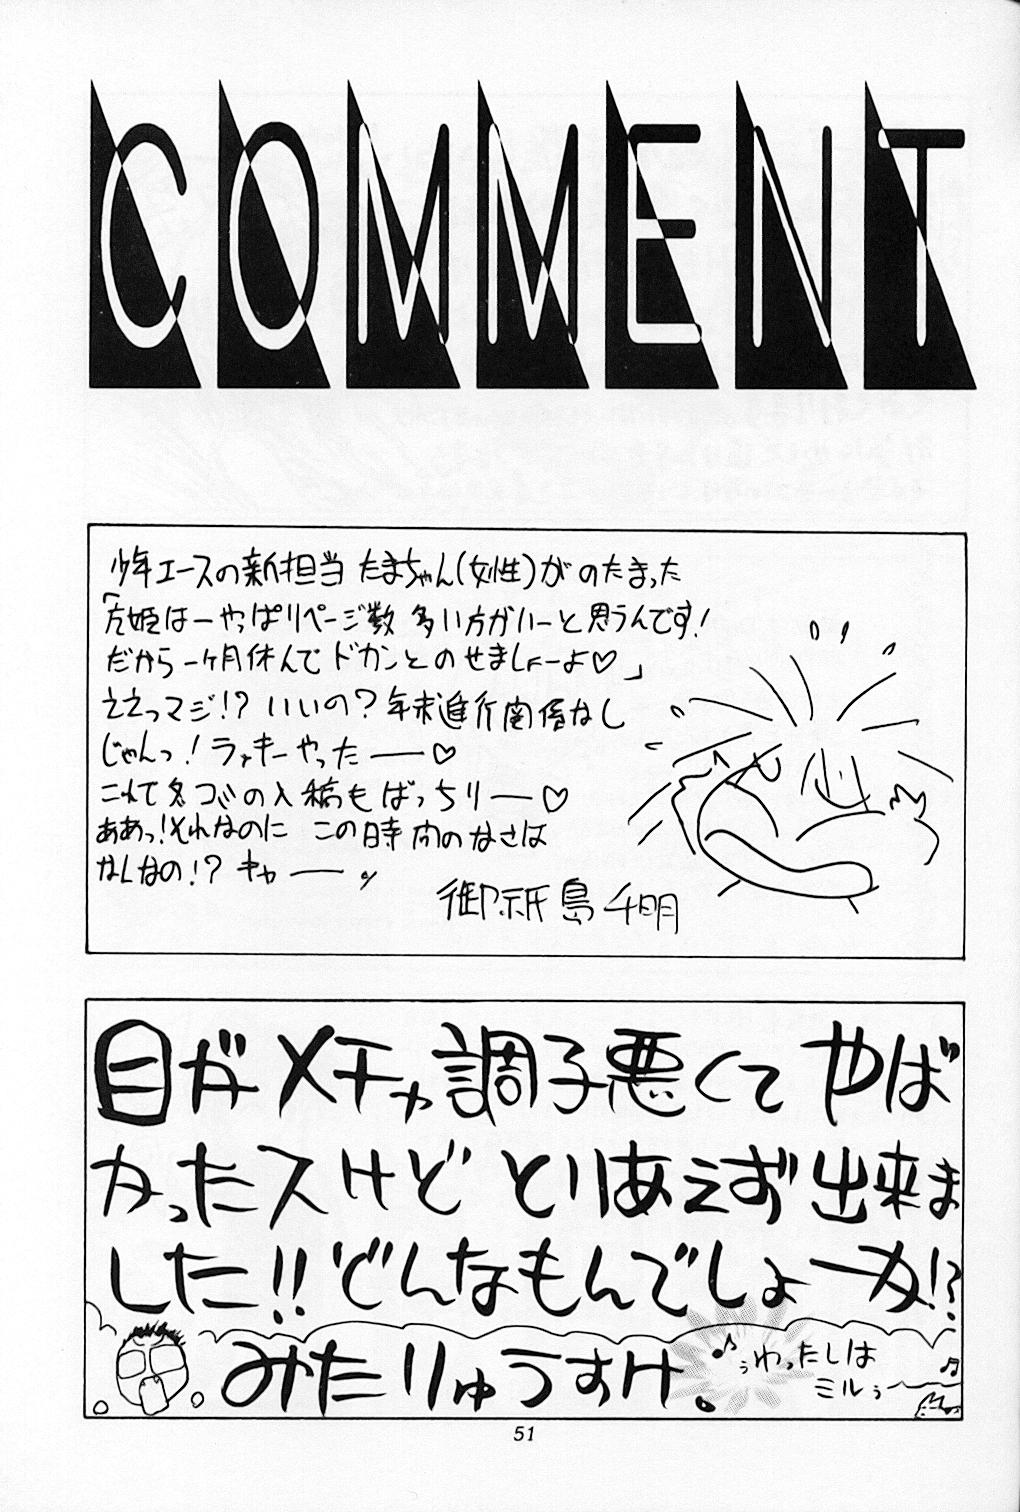 COMMENT
少年エースの新担当 たまちゃん(女性)がのたまった
姫はーやっぱりページ数 多い方がいーと思うんです!
だから一ヶ月休んで ドカンとのせましょーよ♡」
ええっマジ!? いいの?年末進行関係なし
じゃんっ!ラッキーやったー♡
これで冬コミの入稿もばっちりー♡
ああっ!それなのに この時間のなさは
なんなの!? キャー
御祇島千明
目がメチャ調子悪くてやば
かったスけど とりあえず出来ま
した!!どんなもんでしょーか!?
みたりゅうすけ。
♪ぅわったしは
ミルぅ〜♫
51